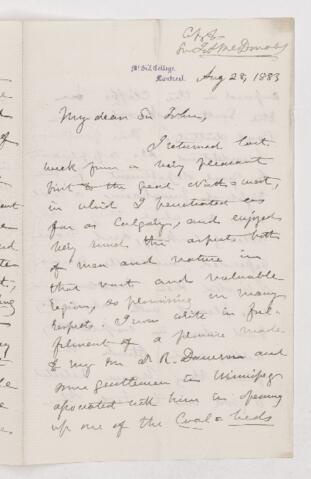 Sir J A McDonald
McGill College,
Montreal.
Aug 28, 1883
My dear Sir John,
I returned last
week from a very pleasant
visit to the great North-west,
in which I penetrated as
far as Calgary, and enjoyed
very much the aspects both
of man and nature in
that vast and valuable
region, so promising in many
respects. I now write in ful-
filment of a promise made
to my son R Dawson and
some gentlemen in Winnipeg
associated with him in opening
up one of the Coal-beds